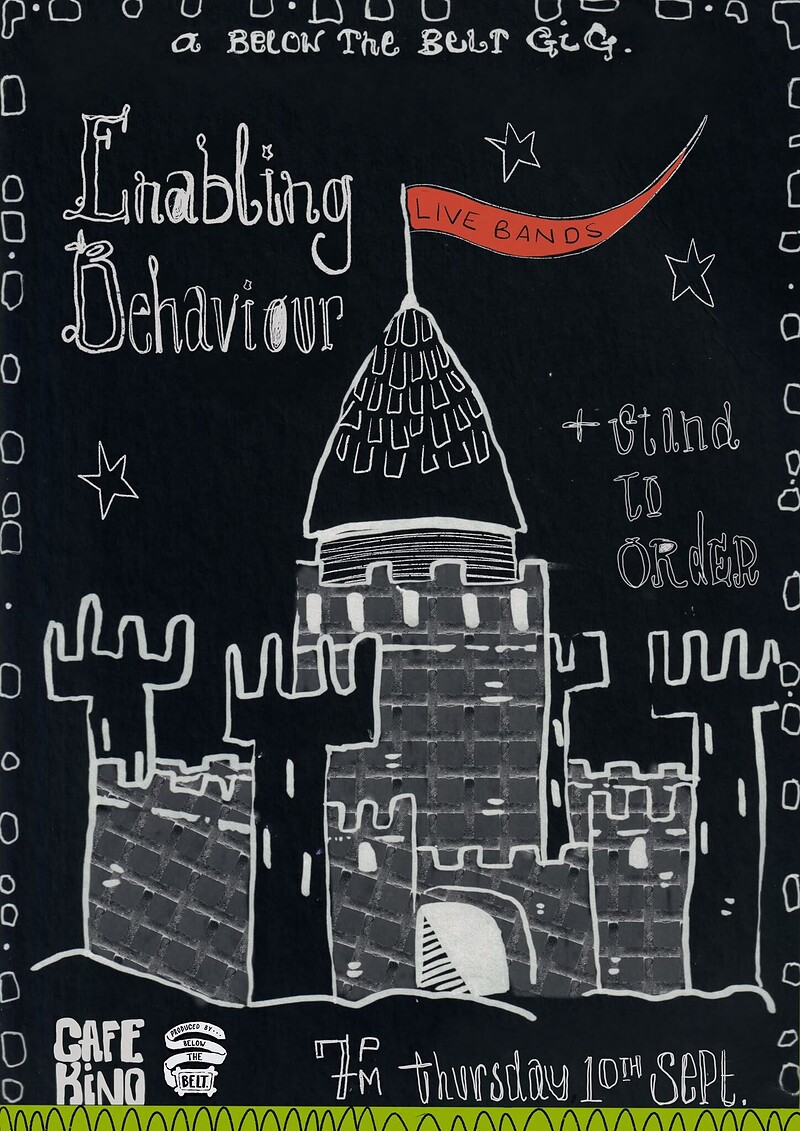 a BELOW The BELT GiG.
Enabling
Behaviour
LIVE BANDS
+ Stand
TO
ORdER
CAFE
KiNO
PRODUCED BY...
BELOW
THE
BELT.
7PM thursday 10TH Sept.